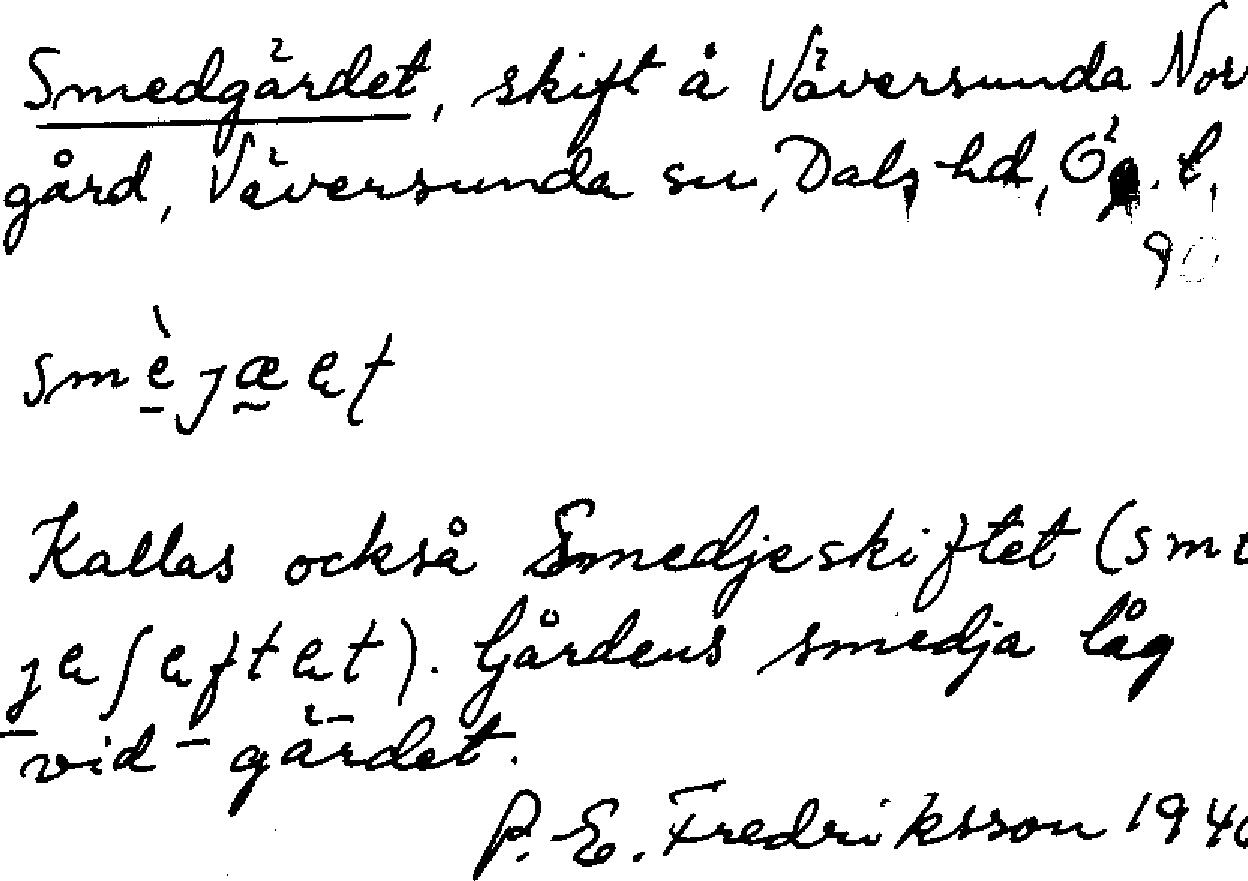 Smedgärdet, skift å Väversunda Nor
gård, Väversunda sn, Dals hd, Ög. l.
90
Kallas också Smedjeskiftet (sme
Gårdens smedja låg
vid gärdet.
P. E. Fredriksson 194